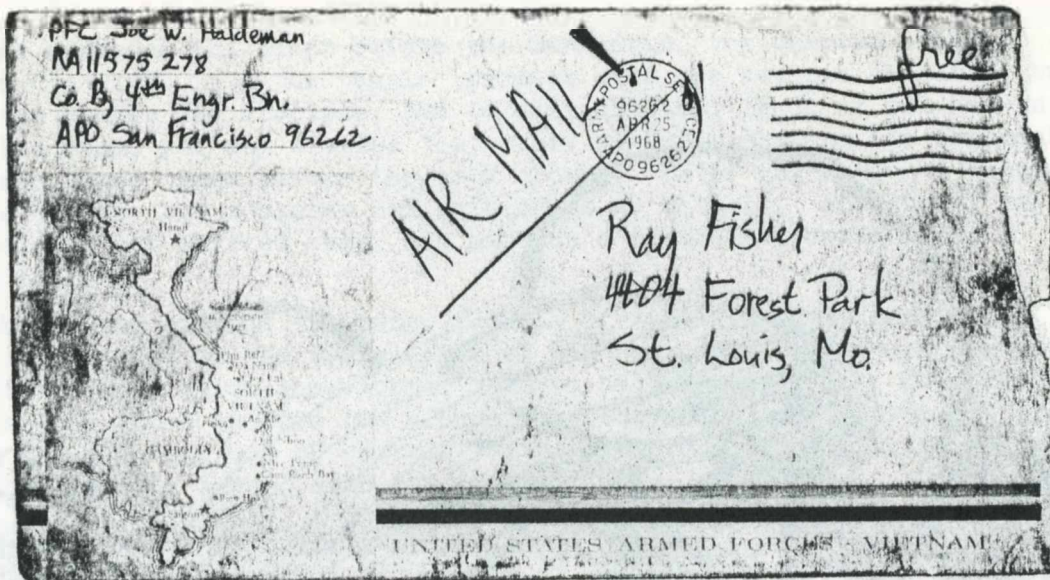 PFC Joe W. Haldeman
RA 11575 278
Co. B, 4th Engr. Bn.
APO San Francisco 96262
AIR MAIL
POSTAL SERVICE
96262
APR 25
1968
APO 96262
free
Ray Fisher
4404 Forest Park
St. Louis, Mo.
NORTH VIETNAM
Hanoi
SOUTH
VIETNAM
CAMBODIA
UNITED STATES ARMED FORCES - VIETNAM